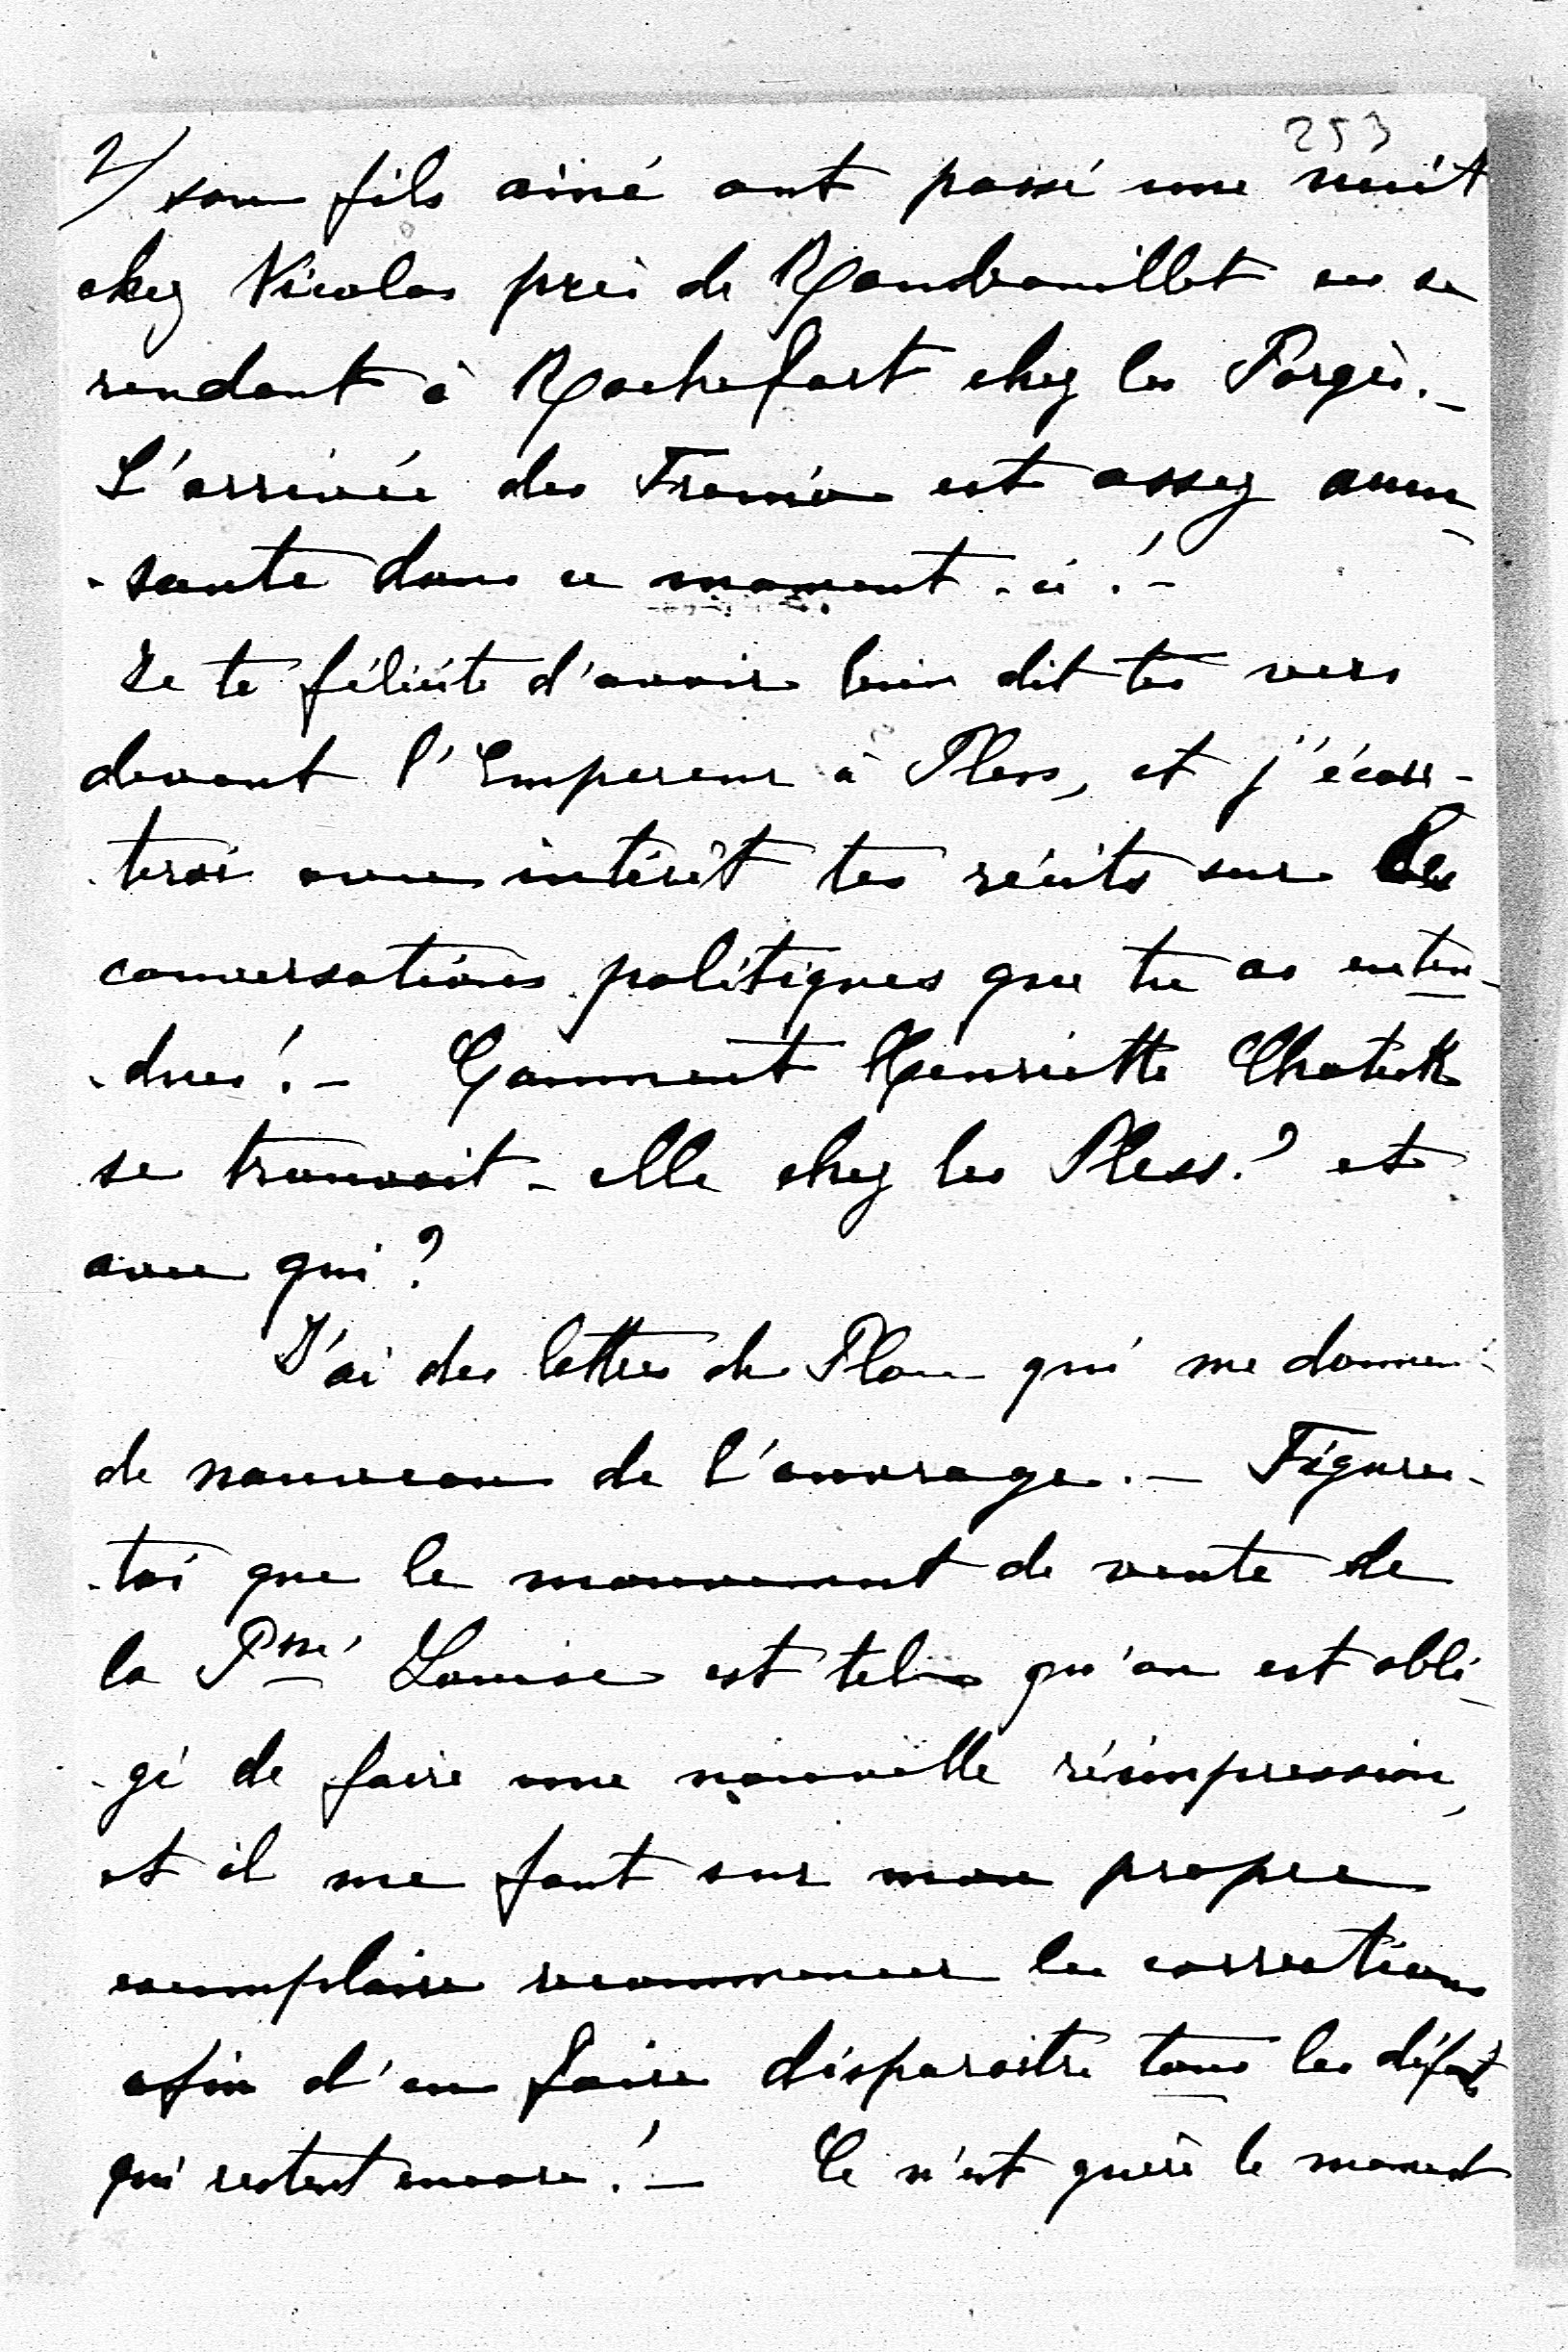 253
2/ son fils ainé ont passé une nuit
chez Nicolas près de Rambouillet en se
rendant à Rochefort chez les Porgès._
L'arrivée des est assez amu_
-sante dans ce moment-ci!_
Je te félicite d'avoir bien dit tes vers
devant l'Empereur à Pless, et j'écou-
-terai avec intérêt tes récits sur les
conversations politiques que tu as enten-
-dues!_ Comment Henriette Chotek
se trouvait-elle chez les Pless? et
avec qui?
J'ai des lettres de Plon qui me donnent
de nouveau de l'ouvrage._ Figures-
-toi que le mouvement de vente de
la Psse Louise est tel qu'on est obli_
-gé de faire une nouvelle réimpression,
et il me faut sur mon propre
exemplaire recommencer les corrections
afin d'en faire disparaitre tous les défauts
qui restent encore!_ Ce n'est guère le moment